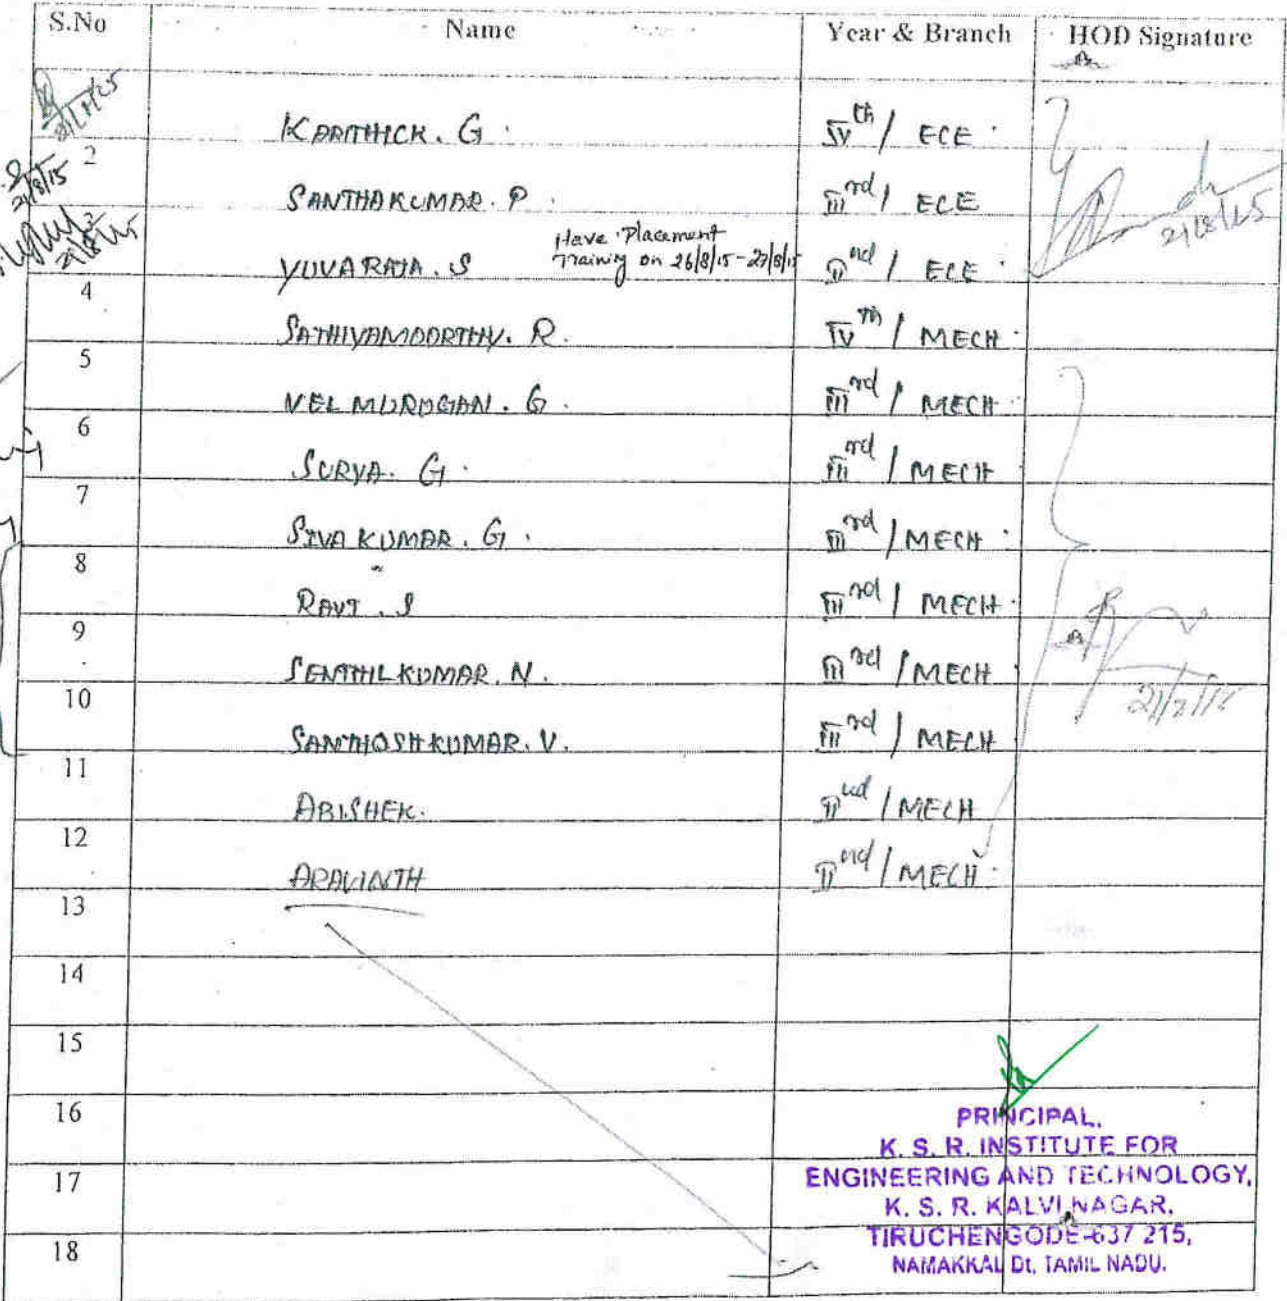 S.No Name Year & Branch HOD Signature
KARTHICK. G. IVth / ECE
2
21/8/15
SANTHAKUMAR. P IIIrd / ECE
3
21/8/15
Have Placement
Training on 26/8/15 - 27/8/15
YUVARAJA. S IInd / ECE
21/8/15
4
SATHIYAMOORTHY. R. IVth / MECH
5
VELMURUGAN. G. IIIrd / MECH
6
SURYA. G. IIIrd / MECH
7
SIVAKUMAR. G. IIIrd / MECH
8
RAVI. S IIIrd / MECH
9
SENTHILKUMAR. N. IIIrd / MECH
10
SANTHOSHKUMAR. V. IIIrd / MECH
11
ABISHEK. IInd / MECH
12
ARAVINTH IInd / MECH
13
14
15
16
PRINCIPAL,
K. S. R. INSTITUTE FOR
17
ENGINEERING AND TECHNOLOGY,
K. S. R. KALVI NAGAR,
18
TIRUCHENGODE-637 215,
NAMAKKAL Dt, TAMIL NADU.